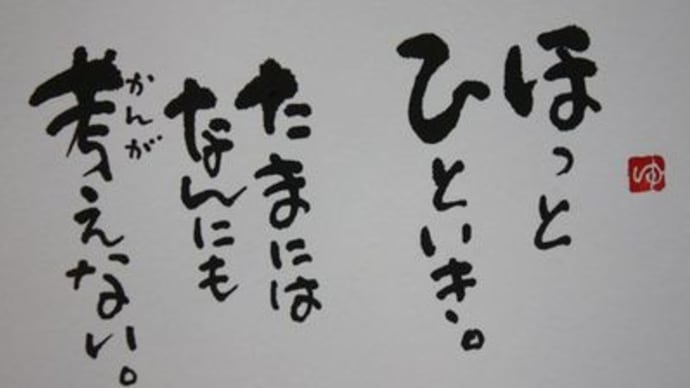 ゆ
ほっと
ひといき。
たまには
なんにも
考えない。
かんが